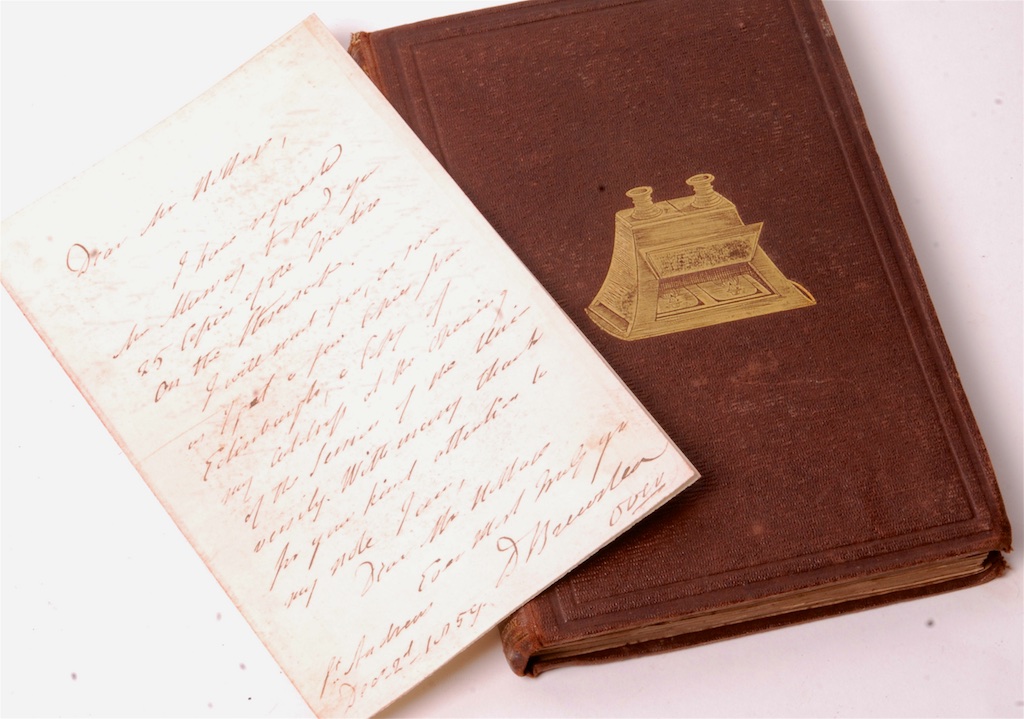 Dear Mr
I have requested
Mr Murray to send you
25 Copies of the
on the Stereoscope.
I will send you, or you
a few Copies from
Edinburgh, a Copy of
my Address at the opening
of the Session of the Uni-
versity. With many thanks
for your kind attention to
my note I am,
Dear Mr
Ever Most
D Brewster
over
St Andrews
Decr 2d 1859.